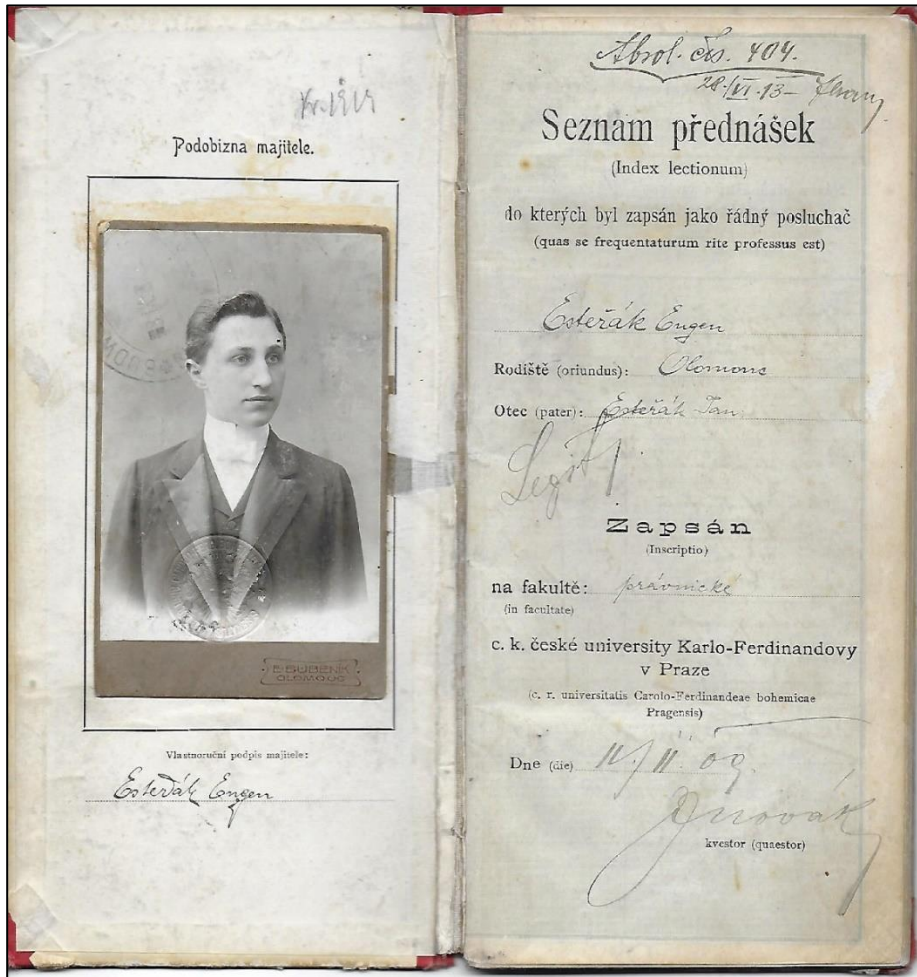 Podobizna majitele.
E. BUBENIK
OLOMOUC
Vlastnoruční podpis majitele:
Esteřák Eugen
Absol. čís. 404.
28./VI. 13
Seznam přednášek
(Index lectionum)
do kterých byl zapsán jako řádný posluchač
(quas se frequentaturum rite professus est)
Esteřák Eugen
Rodiště (oriundus): Olomouc
Otec (pater): Esteřák Jan
Legit
Zapsán
(Inscriptio)
na fakultě: právnické
(in facultate)
c. k. české university Karlo-Ferdinandovy
v Praze
(c. r. universitatis Carolo-Ferdinandeae bohemicae
Pragensis)
Dne (die) 11/11. 09.
Novák
kvestor (quaestor)